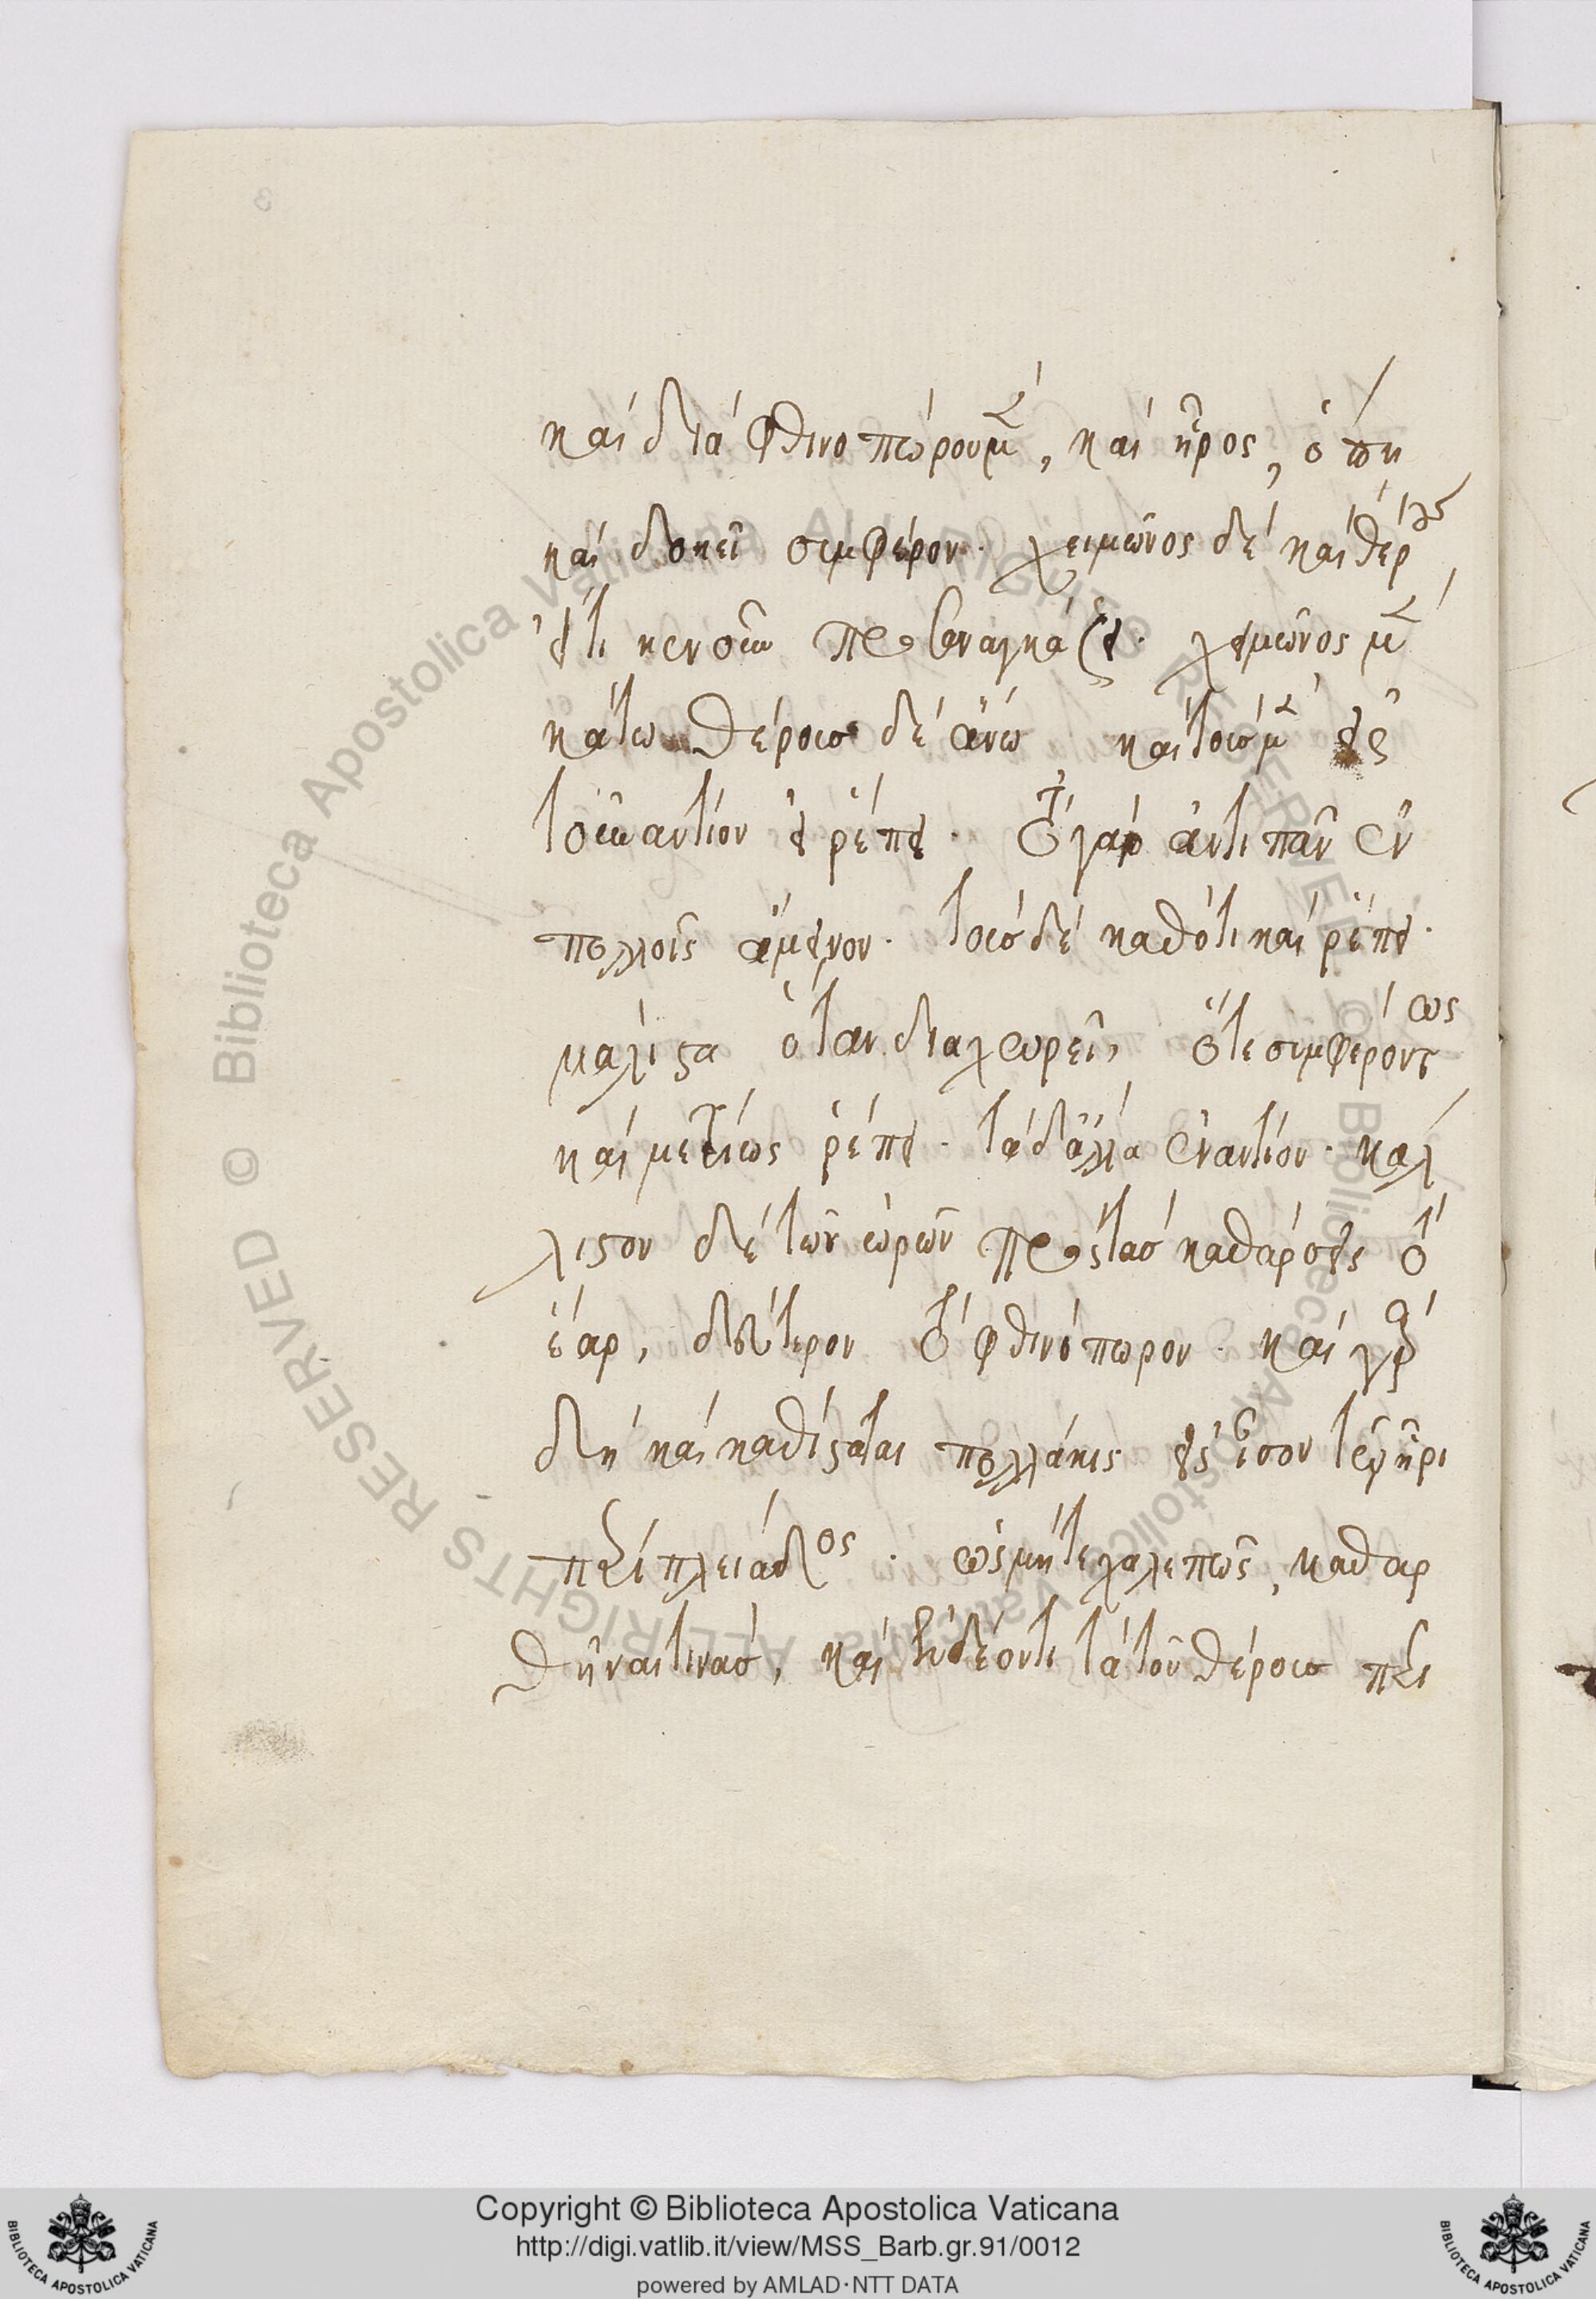 καὶ διὰ φθινοπώρου μὲν, καὶ ἦρος, ὅπη
καὶ δοκεῖ συμφέρον. χειμῶνος δὲ καὶ θέρους
εἴ τι κενοῦν προσαναγκάζει. χειμῶνος μὲν
κάτω θέρους δὲ ἄνω καὶ τοὺς μὲν εἰς
τοὐναντίον εἰ ῥέπει. τὸ γὰρ ἀντισπᾶν ἐν
πολλοῖς ἄμεινον. τοὺς δὲ καθότι καὶ ῥέπει.
μάλιστα ὅταν διαχωρεῖ, ὅτε συμφερόντως
καὶ μετρίως ῥέπει. τὰ δ' ἄλλα ἐναντίον. κάλ
λιστον δὲ τῶν ὡρῶν πρὸς τὰς καθάρσεις τὸ
ἔαρ, δεύτερον τὸ φθινόπωρον. καὶ γὰρ
δὴ καὶ καθίσταται πολλάκις εἰς ἶσον τῷ ἦρι
περὶ πλειάδος. ὡς μήτε χαλεπῶς, καθαρ
θῆναι τινὰς, καὶ τὸ δέοντι τὰ τοῦ θέρους περι
Copyright © Biblioteca Apostolica Vaticana
http://digi.vatlib.it/view/MSS_Barb.gr.91/0012
powered by AMLAD·NTT DATA
BIBLIOTECA APOSTOLICA VATICANA
BIBLIOTECA APOSTOLICA VATICANA
© Biblioteca Apostolica Vaticana ALL RIGHTS RESERVED
© Biblioteca Apostolica Vaticana ALL RIGHTS RESERVED